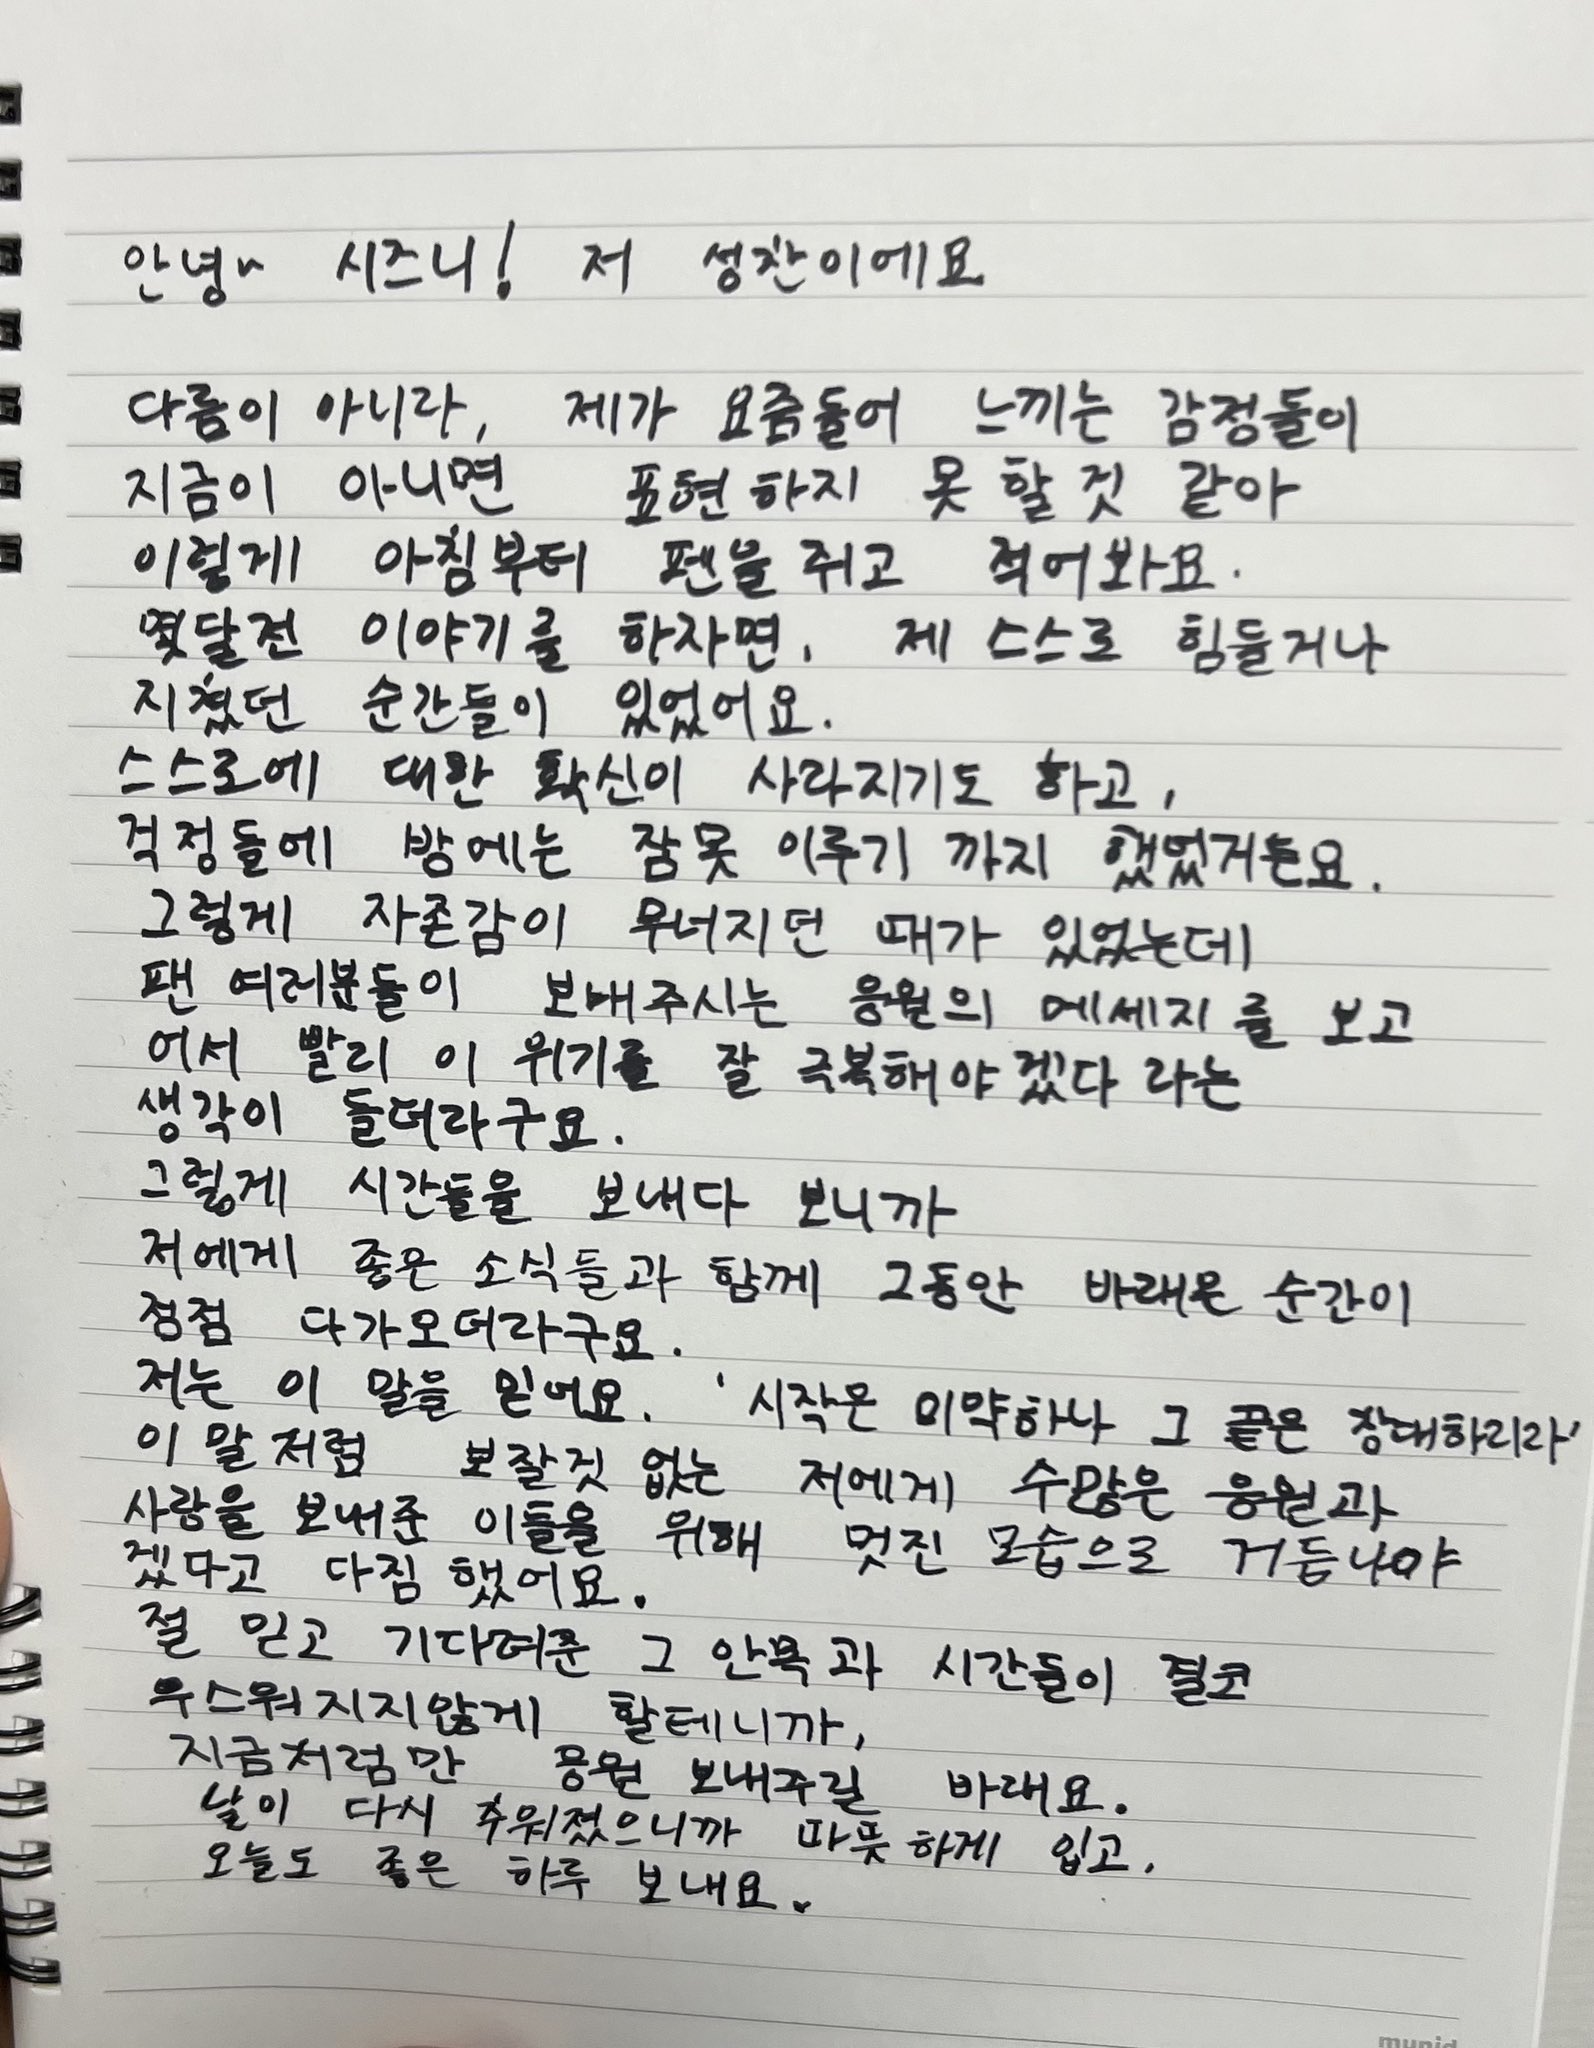 안녕~ 시즈니! 저 성찬이에요
다름이 아니라, 제가 요즘들어 느끼는 감정들이
지금이 아니면 표현하지 못할것 같아
이렇게 아침부터 펜을 쥐고 적어봐요.
몇달전 이야기를 하자면, 제 스스로 힘들거나
지쳤던 순간들이 있었어요.
스스로에 대한 확신이 사라지기도 하고,
걱정들에 밤에는 잠못 이루기 까지 했었거든요.
그렇게 자존감이 무너지던 때가 있었는데
팬 여러분들이 보내주시는 응원의 메세지를 보고
어서 빨리 이 위기를 잘 극복해야겠다 라는
생각이 들더라구요.
그렇게 시간들을 보내다 보니까
저에게 좋은 소식들과 함께 그동안 바래온 순간이
점점 다가오더라구요.
저는 이 말을 믿어요. '시작은 미약하나 그 끝은 창대하리라'
이 말처럼 보잘것 없는 저에게 수많은 응원과
사랑을 보내준 이들을 위해 멋진 모습으로 거듭나야
겠다고 다짐했어요.
절 믿고 기다려준 그 안목과 시간들이 결코
우스워지지않게 할테니까,
지금처럼만 응원 보내주길 바래요.
날이 다시 추워졌으니까 따뜻하게 입고,
오늘도 좋은 하루 보내요.